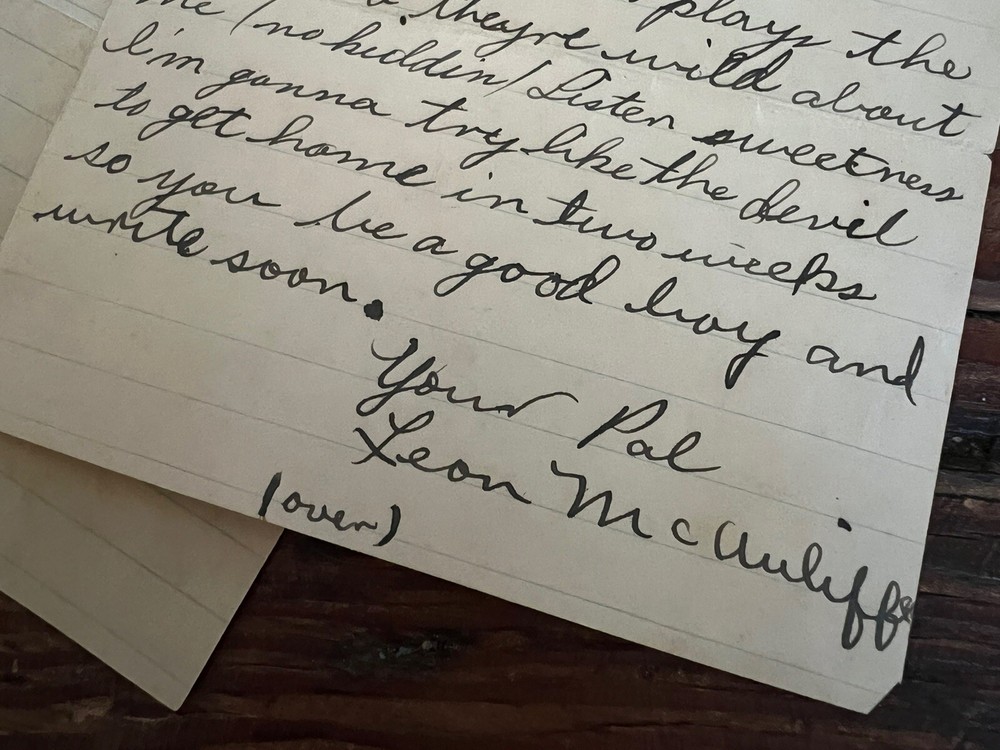 plays the
they're wild about
me (no kiddin) Listen sweetness
I'm gonna try like the devil
to get home in two weeks
so you be a good boy and
write soon.
Your Pal
Leon McAuliffe
(over)